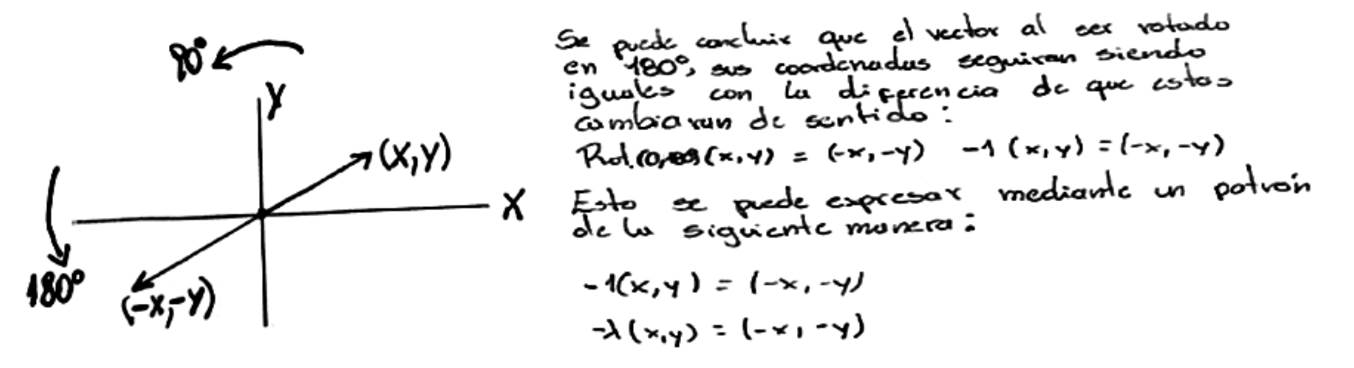 90°
Y
(x,y)
X
180°
(-x,-y)
Se puede concluir que el vector al ser rotado
en 180°, sus coordenadas seguiran siendo
iguales con la diferencia de que estas
cambiaran de sentido:
(x,y) = (-x,-y) -1 (x,y) = (-x,-y)
Esto se puede expresar mediante un patrón
de la siguiente manera:
-1(x,y) = (-x,-y)
-λ(x,y) = (-x,-y)